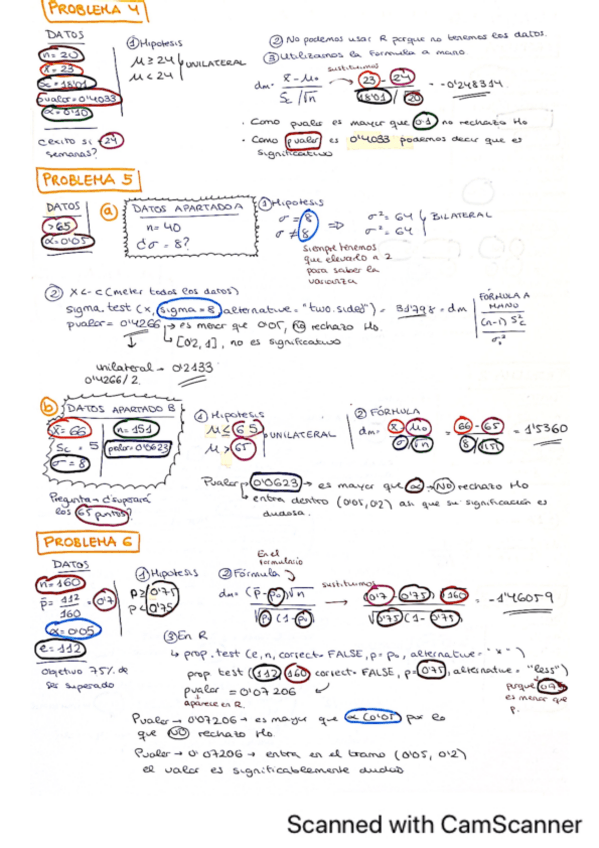 PROBLEMA 4
DATOS
n = 20
x̄ = 23
sc = 18'01
pvalor = 0'4033
α = 0'10
¿exito si < 24
semanas?
① Hipotesis
μ ≥ 24
μ < 24
UNILATERAL
② No podemos usar R porque no tenemos los datos.
③ Utilizamos la formula a mano
dm = x̄ - μ₀ / Sc / √n
sustituimos
23 - 24 / 18'01 / √20 = -0'248314
· Como pvalor es mayor que 0'1 no rechazo Ho
· Como pvalor es 0'4033 podemos decir que es
significativo
PROBLEMA 5
DATOS
> 65
α = 0'05
ⓐ
DATOS APARTADO A
n = 40
¿σ = 8?
① Hipotesis
σ = 8
σ ≠ 8
⇒
σ² = 64
σ² = 64
BILATERAL
siempre tenemos
que elevarlo a 2
para saber la
varianza
② X <- c (meter todos los datos)
sigma.test (x, sigma = 8, alternative = "two.sided") = 31'798 = dm
FÓRMULA A
MANO
(n-1) S²c / σ₀²
pvalor = 0'4266 → es mayor que 0'05, no rechazo Ho.
↳ [0'2, 1], no es significativo
unilateral → 0'2133
0'4266/2
ⓑ
DATOS APARTADO B
x̄ = 66
n = 151
Sc = 5
pvalor = 0'0623
σ = 8
Pregunta → ¿superará
los 65 puntos?
① Hipotesis
μ ≤ 65
μ > 65
UNILATERAL
② FÓRMULA
dm = x̄ - μ₀ / σ / √n = 66 - 65 / 8 / √151 = 1'5360
Pvalor → 0'0623 → es mayor que α → NO rechazo Ho
↳ entra dentro (0'05, 0'2) asi que su significación es
dudosa.
PROBLEMA 6
DATOS
n = 160
p̄ = 112 / 160 = 0'7
α = 0'05
e = 112
Objetivo 75% de
ser superado
① Hipotesis
p ≥ 0'75
p < 0'75
En el
formulario
② Fórmula
dm = (p̄ - p₀) √n / √p₀ (1 - p₀)
sustituimos
(0'7 - 0'75) √160 / √0'75 (1 - 0'75) = -1'46059
③ En R
↳ prop.test (e, n, correct = FALSE, p = p₀, alternative = "x")
prop test (112, 160 correct = FALSE, p = 0'75, alternative = "less")
pvalor = 0'07206
aparece en R.
porque 0'75
es menor que
p.
Pvalor → 0'07206 → es mayor que α (0'05) por lo
que NO rechazo Ho.
Pvalor → 0'07206 → entra en el tramo (0'05, 0'2)
el valor es significablemente dudoso
Scanned with CamScanner